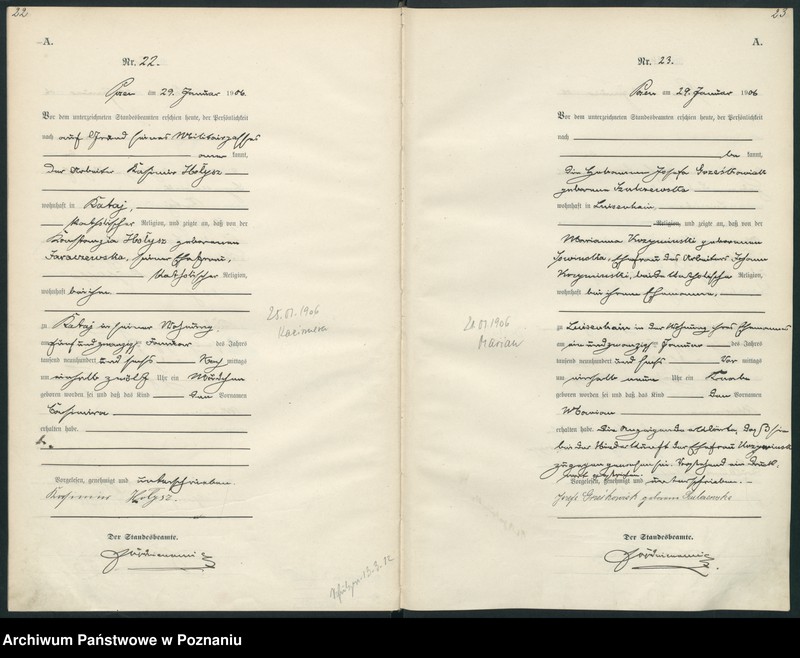 22
A.
Nr. 22.
Posen am 29. Januar 1906
Vor dem unterzeichneten Standesbeamten erschien heute, der Persönlichkeit
nach auf Grund seines Militairpasses
aner kannt,
der Arbeiter Kasimir Hołysz
wohnhaft in Rataj,
katholischer Religion, und zeigte an, daß von der
Konstanzia Hołysz geborenen
seiner Ehefrau,
katholischer Religion,
wohnhaft bei ihm
zu Rataj in seiner Wohnung
am fünf und zwanzigsten Januar des Jahres
tausend neunhundert und sechs Nach mittags
um einhalb zwölf Uhr ein Mädchen
geboren worden sei und daß das Kind den Vornamen
Casimira
erhalten habe.
Vorgelesen, genehmigt und unterschrieben.
Kasimir Hołysz.
Der Standesbeamte.
25.01.1906
Kazimiera
13.3.12
23
A.
Nr. 23.
Posen am 29. Januar 1906
Vor dem unterzeichneten Standesbeamten erschien heute, der Persönlichkeit
nach
be kannt,
die Hebamme Josefa Grześkowiak
geborene Szulczewska
wohnhaft in Luisenhain,
Religion, und zeigte an, daß von der
Marianna Krzyminski geborenen
Ehefrau des Arbeiters Johann
Krzyminski, beide katholischer Religion,
wohnhaft bei ihrem Ehemanne,
zu Luisenhain in der Wohnung ihres Ehemannes
am ein und zwanzigsten Januar des Jahres
tausend neunhundert und sechs Vor mittags
um einhalb neun Uhr ein Knabe
geboren worden sei und daß das Kind den Vornamen
Marian
erhalten habe. Die Anzeigende erklärte, daß sie
bei der Niederkunft der Ehefrau Krzyminski
zugegen gewesen sei. Vorstehend ein Druck-
wort gestrichen.
Vorgelesen, genehmigt und unterschrieben.
Josefa Grześkowiak geborene Szulczewska
Der Standesbeamte.
21.01.1906
Marian
Archiwum Państwowe w Poznaniu